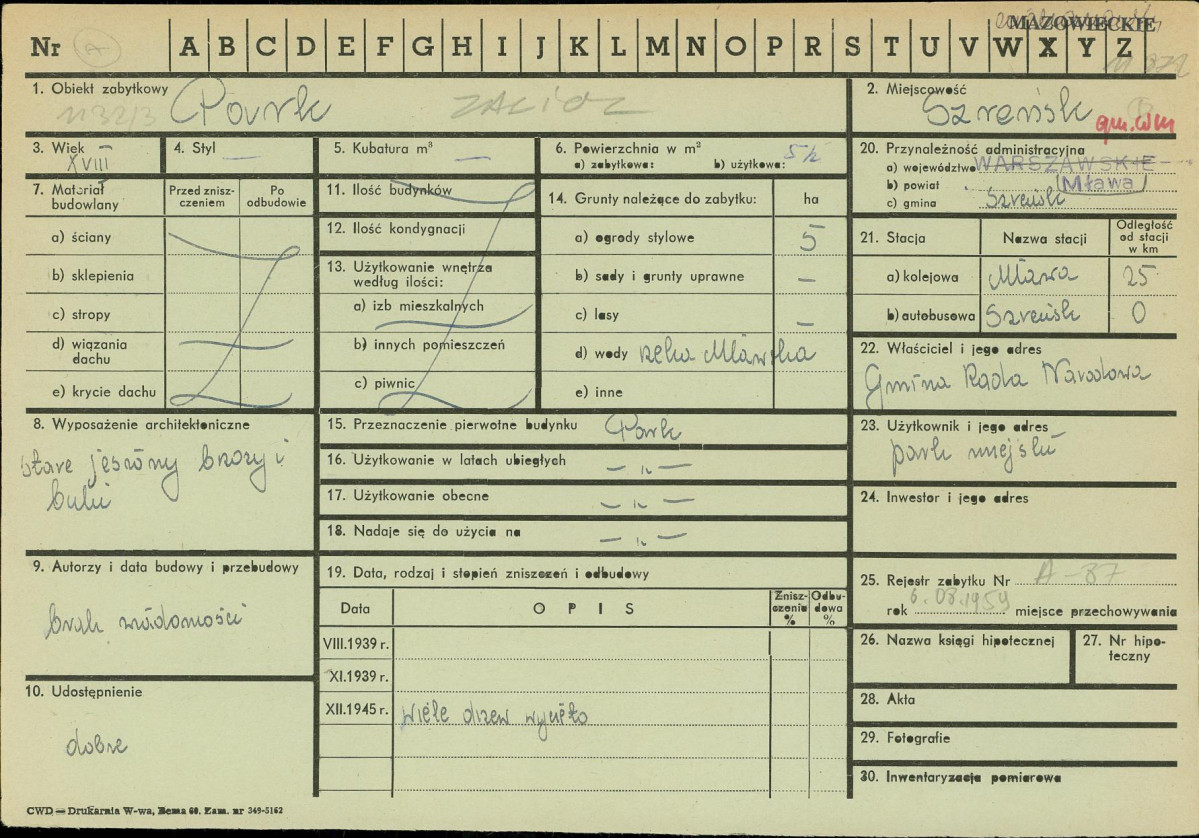 MAZOWIECKIE
Nr A A B C D E F G H I J K L M N O P R S T U V W X Y Z
1. Obiekt zabytkowy
1132/3 Park
2. Miejscowość
Szreńsk gm. loco
3. Wiek
XVIII
4. Styl
—
5. Kubatura m³
—
6. Powierzchnia w m²
a) zabytkowa: b) użytkowa: 5 h
20. Przynależność administracyjna
a) województwo WARSZAWSKIE
b) powiat Mława
c) gmina Szreńsk
7. Materiał budowlany
Przed zniszczeniem
Po odbudowie
a) ściany
b) sklepienia
c) stropy
d) wiązania dachu
e) krycie dachu
11. Ilość budynków
12. Ilość kondygnacji
13. Użytkowanie wnętrza
według ilości:
a) izb mieszkalnych
b) innych pomieszczeń
c) piwnic
14. Grunty należące do zabytku: ha
a) ogrody stylowe 5
b) sady i grunty uprawne —
c) lasy —
d) wody rzeka Mławka
e) inne
21. Stacja Nazwa stacji Odległość od stacji w km
a) kolejowa Mława 25
b) autobusowa Szreńsk 0
22. Właściciel i jego adres
Gmina Rada Narodowa
8. Wyposażenie architektoniczne
stare jesiony brzozy i
buki
15. Przeznaczenie pierwotne budynku Park
16. Użytkowanie w latach ubiegłych — „ —
17. Użytkowanie obecne — „ —
18. Nadaje się do użycia na — „ —
23. Użytkownik i jego adres
park miejski
24. Inwestor i jego adres
9. Autorzy i data budowy i przebudowy
brak wiadomości
19. Data, rodzaj i stopień zniszczeń i odbudowy
Data OPIS Zniszczenia % Odbudowa %
VIII.1939 r.
XI.1939 r.
XII.1945 r. wiele drzew wycięto
25. Rejestr zabytku Nr A-87
rok 6.03.1959 miejsce przechowywania
26. Nazwa księgi hipotecznej
27. Nr hipoteczny
10. Udostępnienie
dobre
28. Akta
29. Fotografie
30. Inwentaryzacja pomiarowa
CWD — Drukarnia W-wa, Bema 60. Zam. nr 349-5162